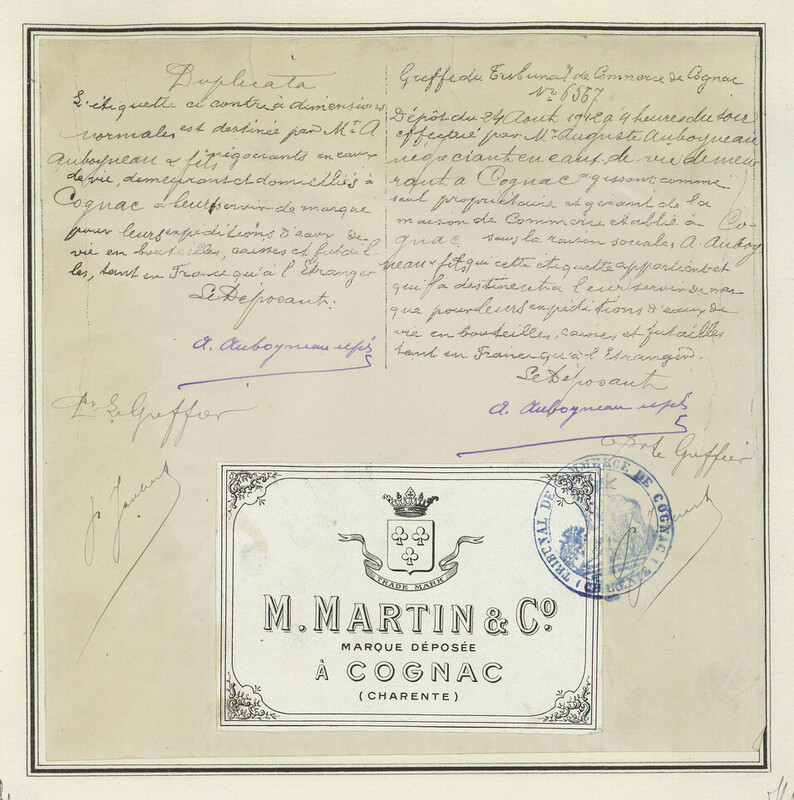 Duplicata
L'étiquette ci contre à dimensions
normales est destinée par Mr A
Auboyneau & fils négociants en eaux
de vie, demeurant et domiciliés à
Cognac à leur servir de marque
pour leurs expéditions d'eaux de
vie en bouteilles, caisses et futail
les, tant en France qu'à l'Etranger
Le Déposant:
A. Auboyneau &fils
Pr Le Greffier
Greffe du Tribunal de Commerce de Cognac
No 6557
Dépôt du 24 Aout 1912 à 4 heures du soir
effectué par Mr Auguste Auboyneau
négociant en eaux-de-vie demeu
rant à Cognac agissant comme
seul propriétaire et gérant de la
maison de Commerce établie à Co-
gnac sous la raison sociale, A. Auboy
neau & fils, qui cette étiquette appartient et
qu'il a destine à leur servir de mar
que pour leurs expéditions d'eaux de
vie en bouteilles, caisses et futailles
tant en France qu'à l'Etranger.
Le Déposant
A. Auboyneau &fils
Pr Le Greffier
TRIBUNAL DE COMMERCE DE COGNAC
TRADE MARK
M. MARTIN & Co.
MARQUE DÉPOSÉE
À COGNAC
(CHARENTE)